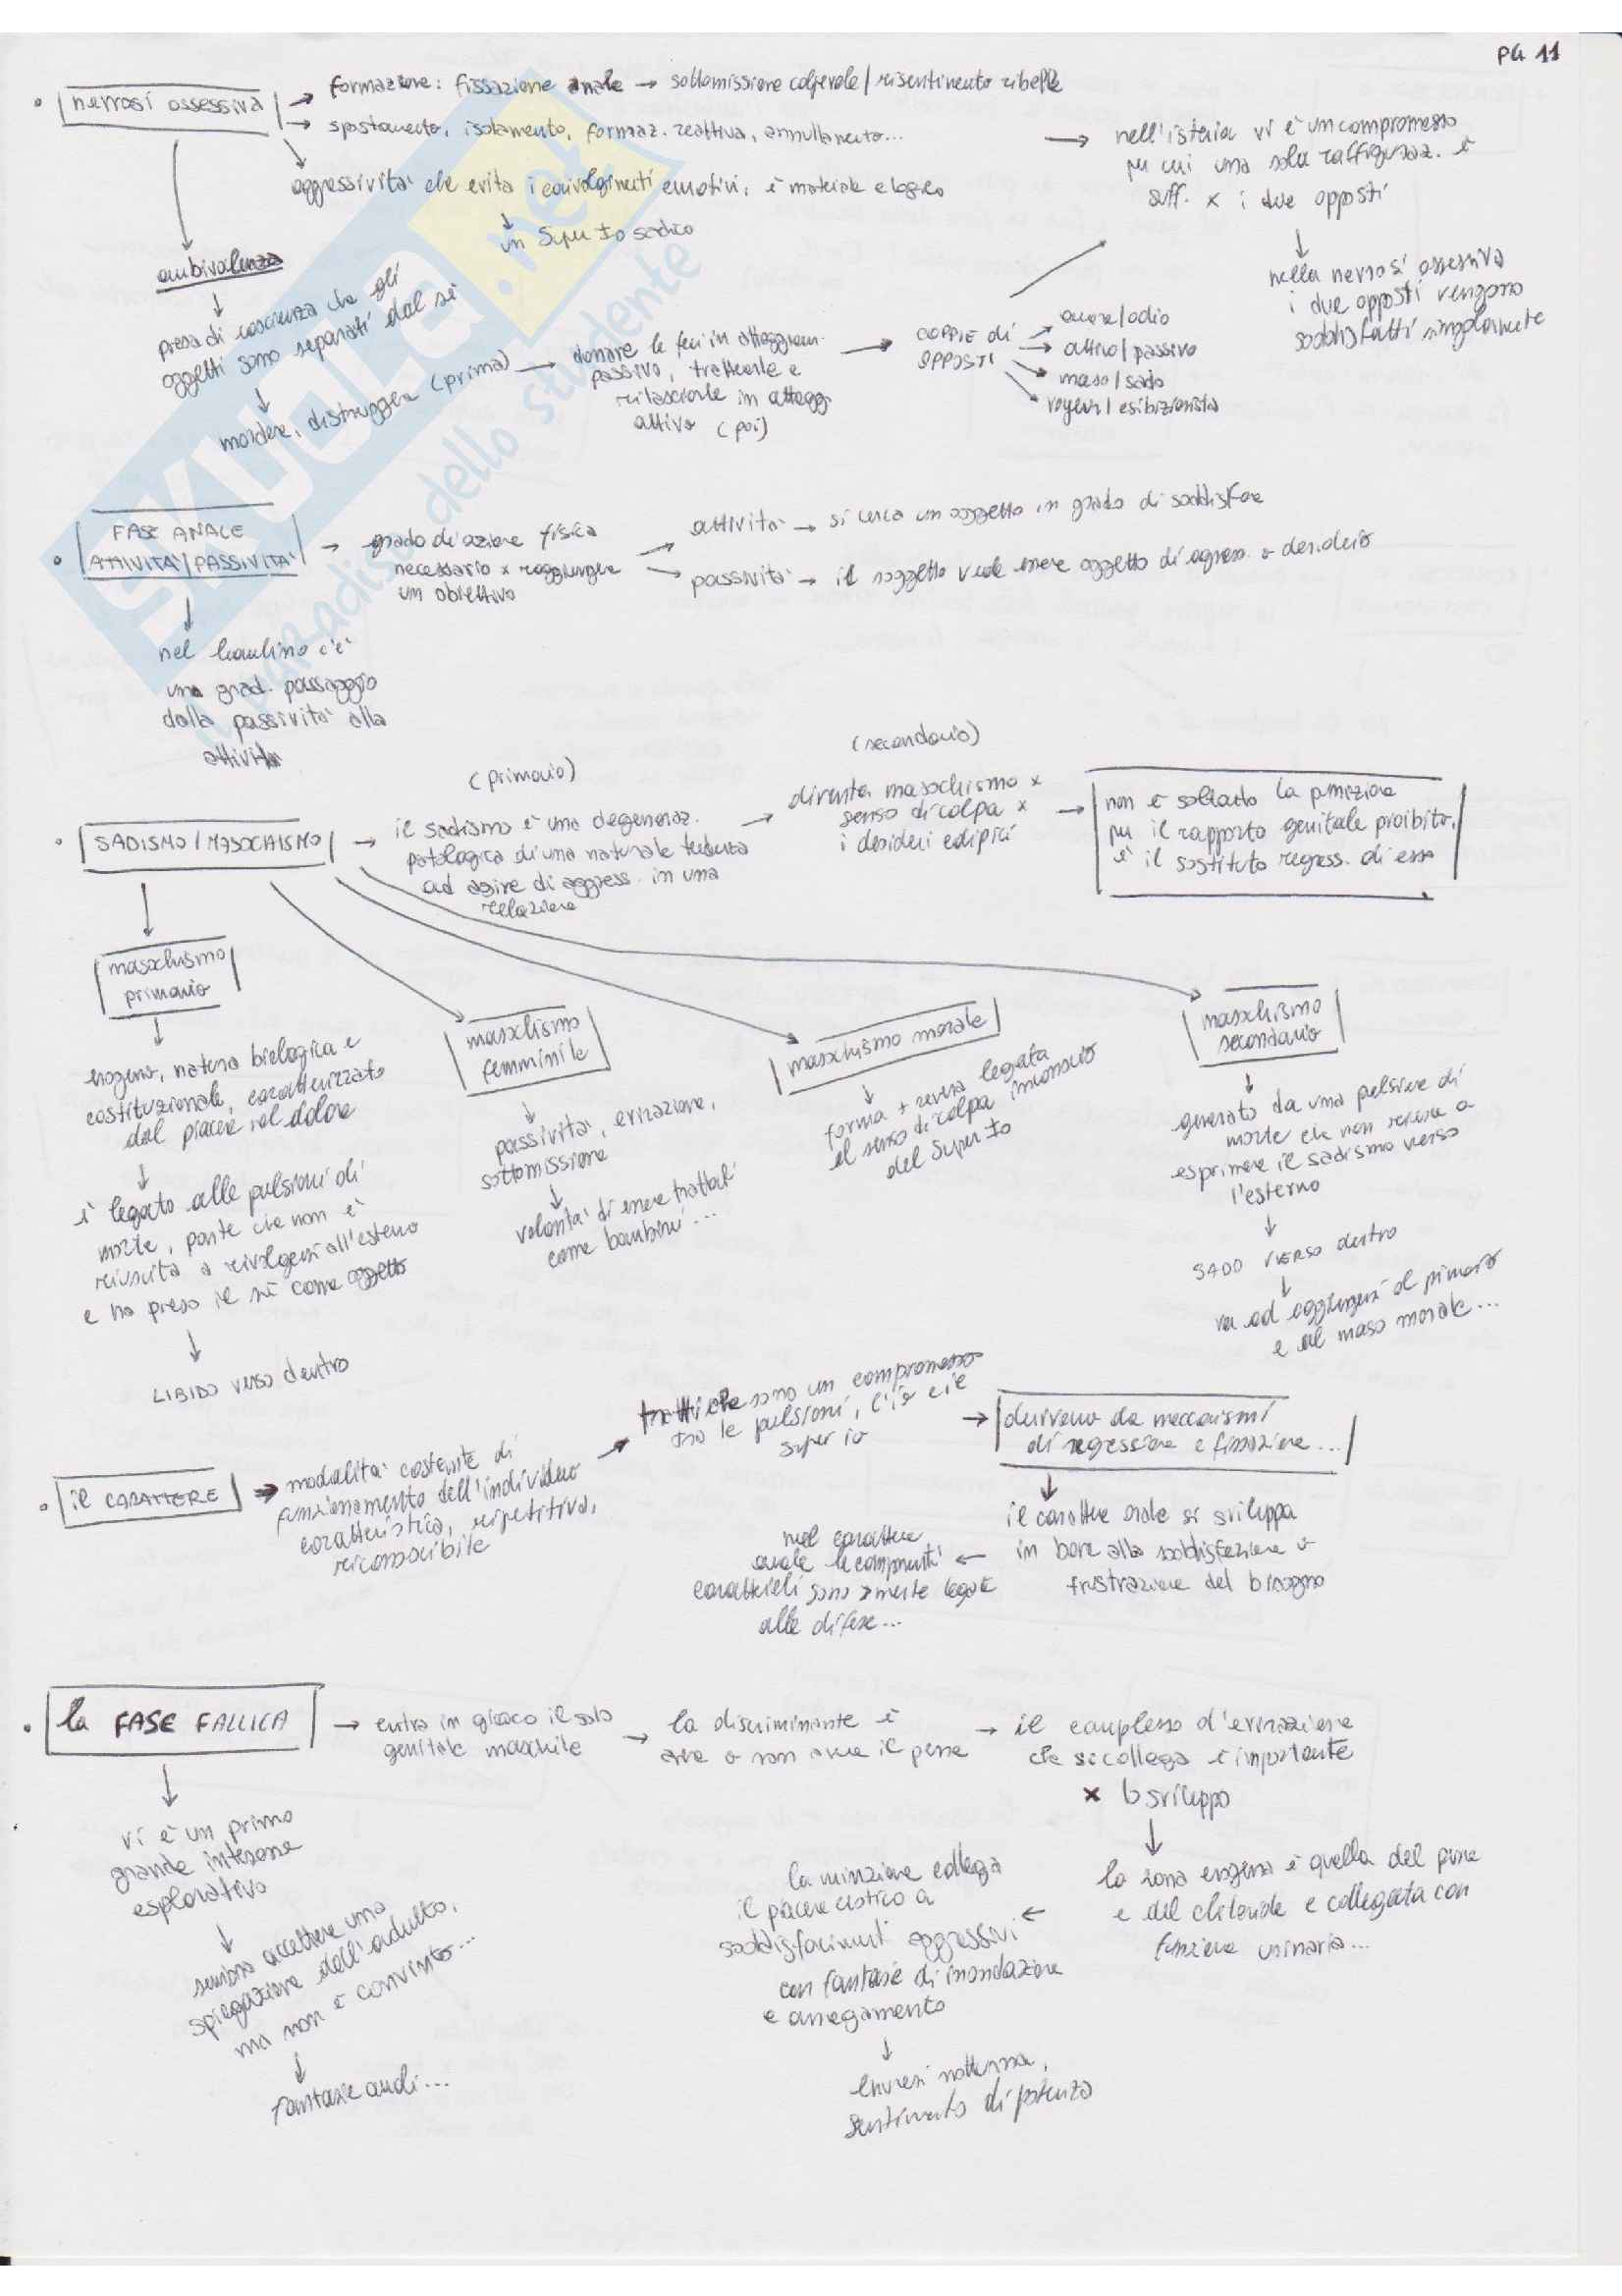 PG 11
• nevrosi ossessiva
→ formazione: fissazione anale → sottomissione colpevole / risentimento ribelle
→ spostamento, isolamento, formaz. reattiva, annullamento...
aggressività che evita i coinvolgimenti emotivi, è materiale e logico
↓
un Super Io sadico
→ nell'isteria vi è un compromesso
per cui una sola raffiguraz. è
suff. x i due opposti
↓
nella nevrosi ossessiva
i due opposti vengono
soddisfatti singolarmente
ambivalenza
↓
presa di coscienza che gli
oggetti sono separati dal sé
↓
mordere, distruggere (prima) →
donare le feci in atteggiam.
passivo, trattenerle e
rilasciarle in attegg.
attivo (poi)
→ COPPIE di
OPPOSTI
amore/odio
attivo/passivo
maso/sado
voyeur/esibizionista
• FASE ANALE
ATTIVITA'/PASSIVITA'
→ grado di azione fisica
necessario x raggiungere
un obiettivo
attività → si cerca un oggetto in grado di soddisfare
passività → il soggetto vuole essere oggetto di aggress. o desiderio
↓
nel bambino c'è
un grad. passaggio
dalla passività alla
attività
• SADISMO/MASOCHISMO
(primario)
→ il sadismo è una degeneraz.
patologica di una naturale tendenza
ad agire di aggress. in una
relazione
(secondario)
→ diventa masochismo x
senso di colpa x
i desideri edipici
→ non è soltanto la punizione
per il rapporto genitale proibito,
è il sostituto regress. di esso
masochismo
primario
↓
erogeno, natura biologica e
costituzionale, caratterizzato
dal piacere nel dolore
↓
è legato alle pulsioni di
morte, parte che non è
riuscita a rivolgersi all'esterno
e ha preso il sé come oggetto
↓
LIBIDO verso dentro
masochismo
femminile
↓
passività, evirazione,
sottomissione
↓
volontà di essere trattati
come bambini...
masochismo morale
↓
forma + severa legata
al senso di colpa inconscio
del Super Io
masochismo
secondario
↓
generato da una pulsione di
morte che non riesce a
esprimere il sadismo verso
l'esterno
↓
SADO VERSO dentro
↓
va ad aggiungersi al primario
e al maso morale...
• il CARATTERE
→ modalità costante di
funzionamento dell'individuo
caratteristica, ripetitiva,
riconoscibile
tratti che sono un compromesso
tra le pulsioni, l'io e il
super io
→ derivano da meccanismi
di regressione e fissazione...
↓
il carattere orale si sviluppa
in base alla soddisfazione o
frustrazione del bisogno
←
nel carattere
anale le componenti
caratteriali sono legate
alle difese...
• la FASE FALLICA
→ entra in gioco il solo
genitale maschile
→ la discriminante è
avere o non avere il pene
→ il complesso d'evirazione
che si collega è importante
x lo sviluppo
↓
la zona erogena è quella del pene
e del clitoride e collegata con
funzione urinaria...
←
la minzione collega
il piacere erotico a
soddisfacimenti aggressivi
con fantasie di inondazione
e annegamento
↓
enuresi notturna,
sentimento di potenza
↓
vi è un primo
grande interesse
esplorativo
↓
sembra accettare una
spiegazione dell'adulto,
ma non è convinto...
↓
fantasie anali...
SKUOLA.net
il paradiso dello studente